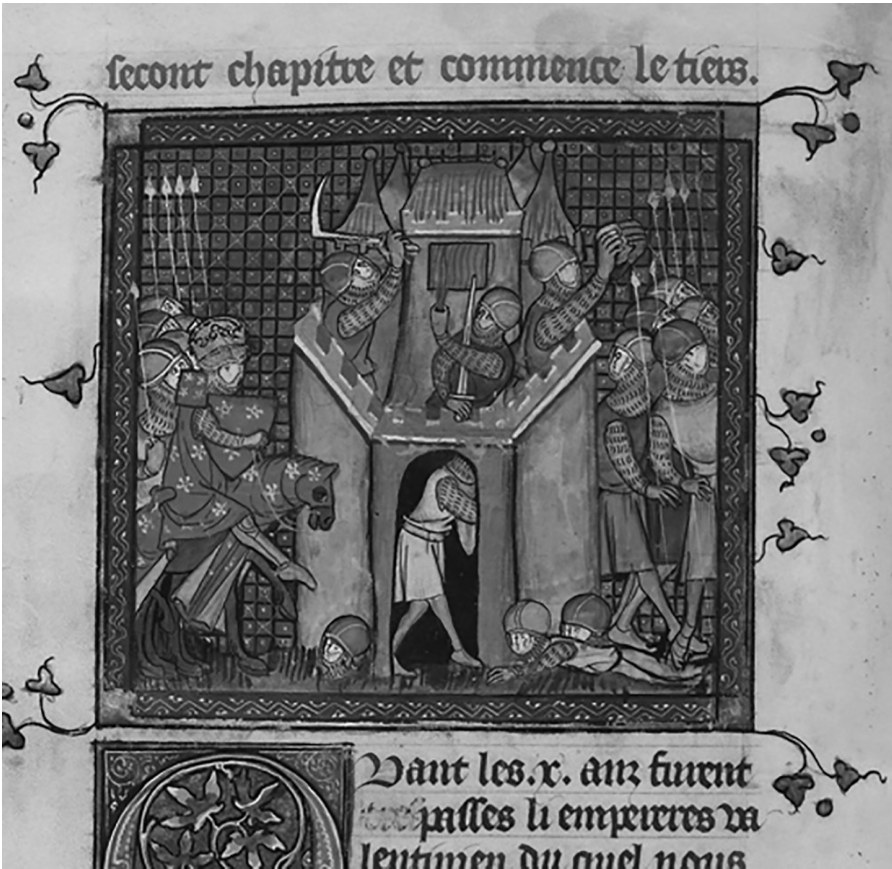 secont chapitre et commence le tiers.
Quant les .x. anz furent
passes li empereres va
lentinien du quel nous